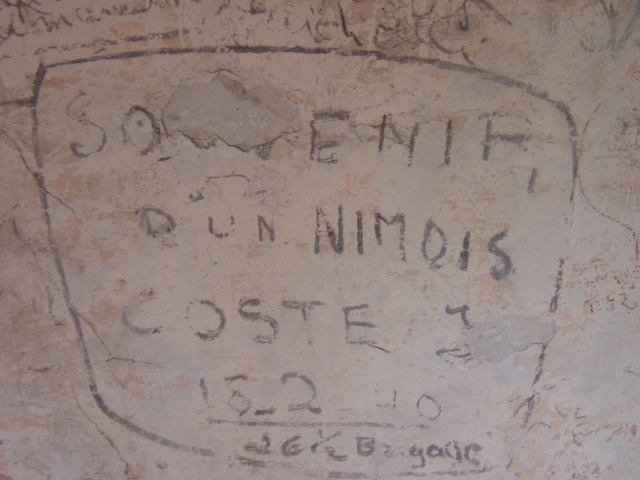 SOUVENIR
D'UN NIMOIS
COSTE J
15_2_40
26E ½ Brigade